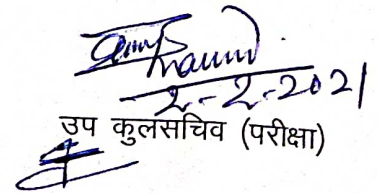 2-2-2021
उप कुलसचिव (परीक्षा)